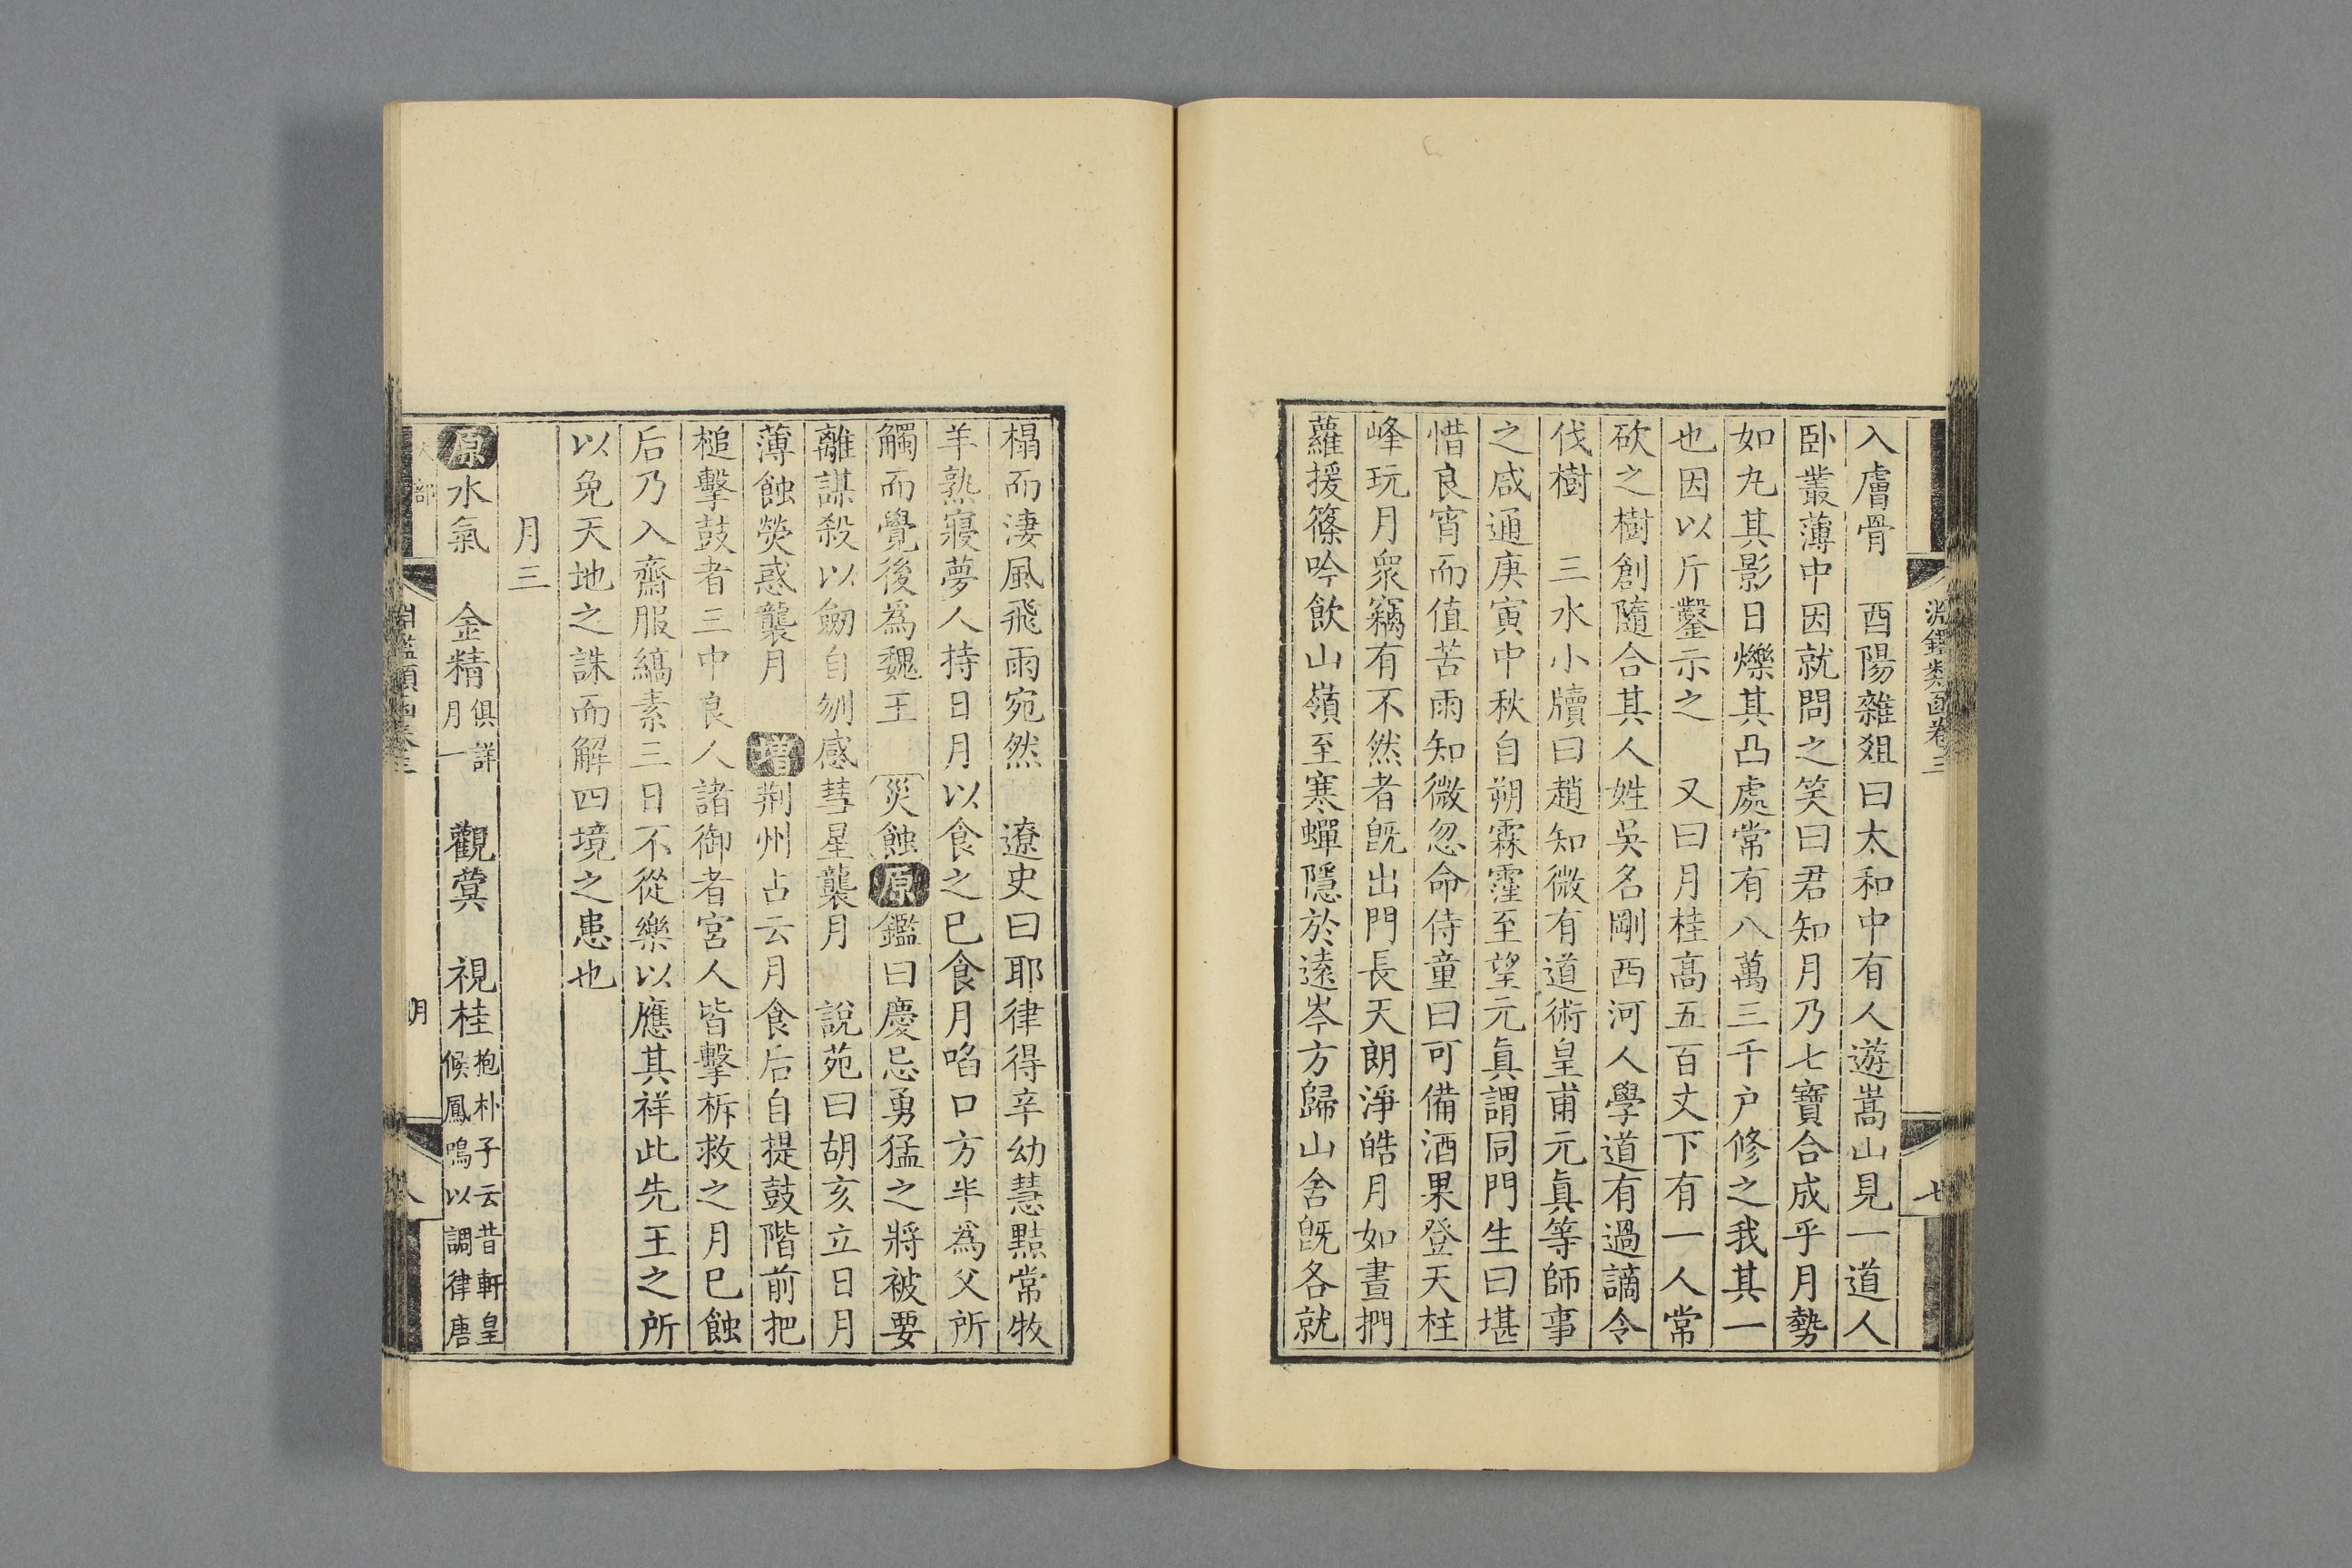 淵鑑類函卷三
七
入膚骨　酉陽雜爼曰太和中有人遊嵩山見一道人
卧叢薄中因就問之笑曰君知月乃七寶合成乎月勢
如丸其影日爍其凸處常有八萬三千户修之我其一
也因以斤鑿示之　又曰月桂高五百丈下有一人常
砍之樹創隨合其人姓吳名剛西河人學道有過謫令
伐樹　三水小牘曰趙知微有道術皇甫元眞等師事
之咸通庚寅中秋自朔霖霪至望元眞謂同門生曰堪
惜良宵而值苦雨知微忽命侍童曰可備酒果登天柱
峰玩月衆竊有不然者旣出門長天朗淨皓月如晝捫
蘿援篠吟飲山嶺至寒蟬隱於遠岑方歸山舍旣各就
榻而淒風飛雨宛然　遼史曰耶律得辛幼慧黠常牧
羊熟寢夢人持日月以食之巳食月啗口方半爲父所
觸而覺後爲魏王　災蝕原鑑曰慶忌勇猛之將被要
離謀殺以劒自刎感彗星襲月　說苑曰胡亥立日月
薄蝕熒惑襲月　增荆州占云月食后自提鼓階前把
槌擊鼓者三中良人諸御者宮人皆擊柝救之月巳蝕
后乃入齋服縞素三日不從樂以應其祥此先王之所
以免天地之誅而解四境之患也
月三
原水氣　金精俱詳月一　觀蓂　視桂抱朴子云昔軒皇候鳳鳴以調律唐
部
淵鑑類函卷三
月
八